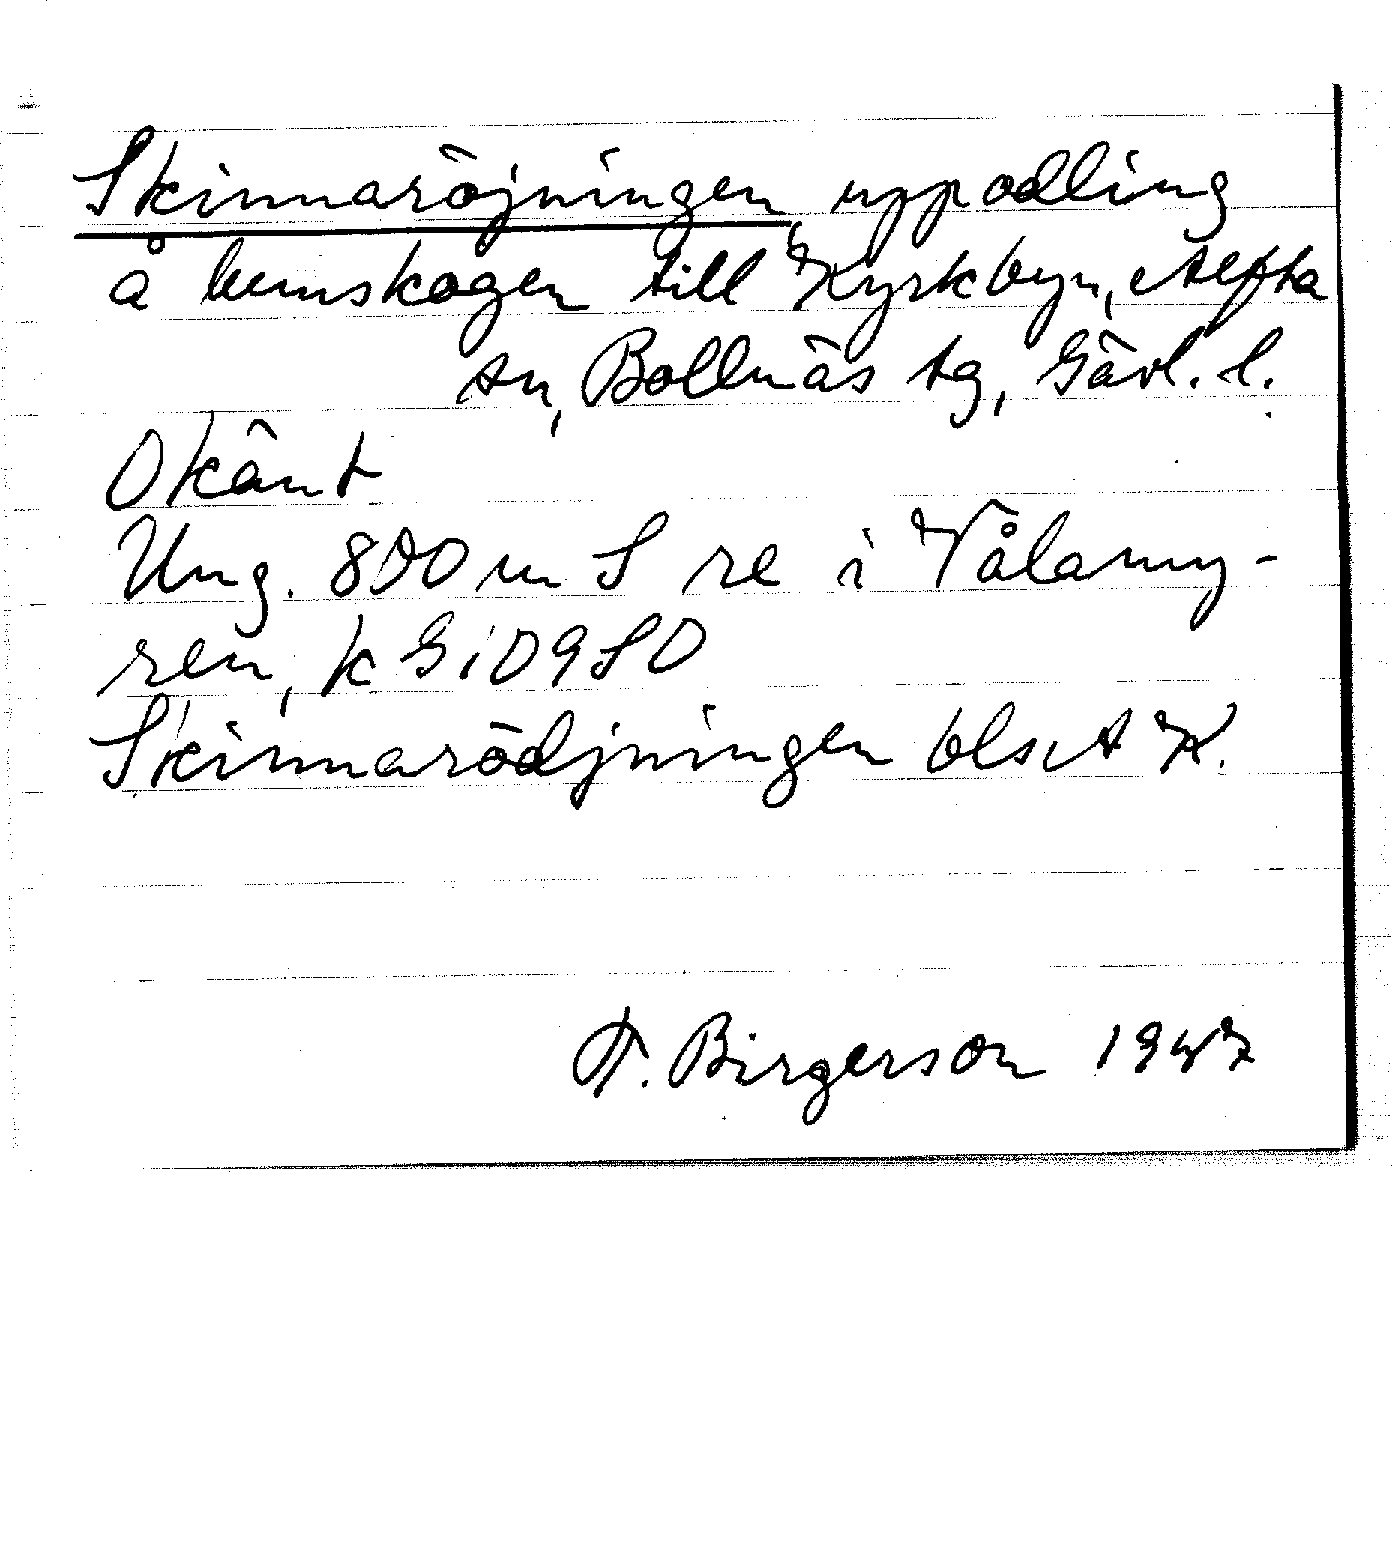 Skinnaröjningen, uppodling
å hemskogen till Kyrkbyn, Alfta
sn, Bollnäs tg, Gävl. l.
Okänt
Ung. 800 m S re i Vålarmy-
ren, k GiO9SO
Skinnarödjningen blst K.
F. Birgerson 1947